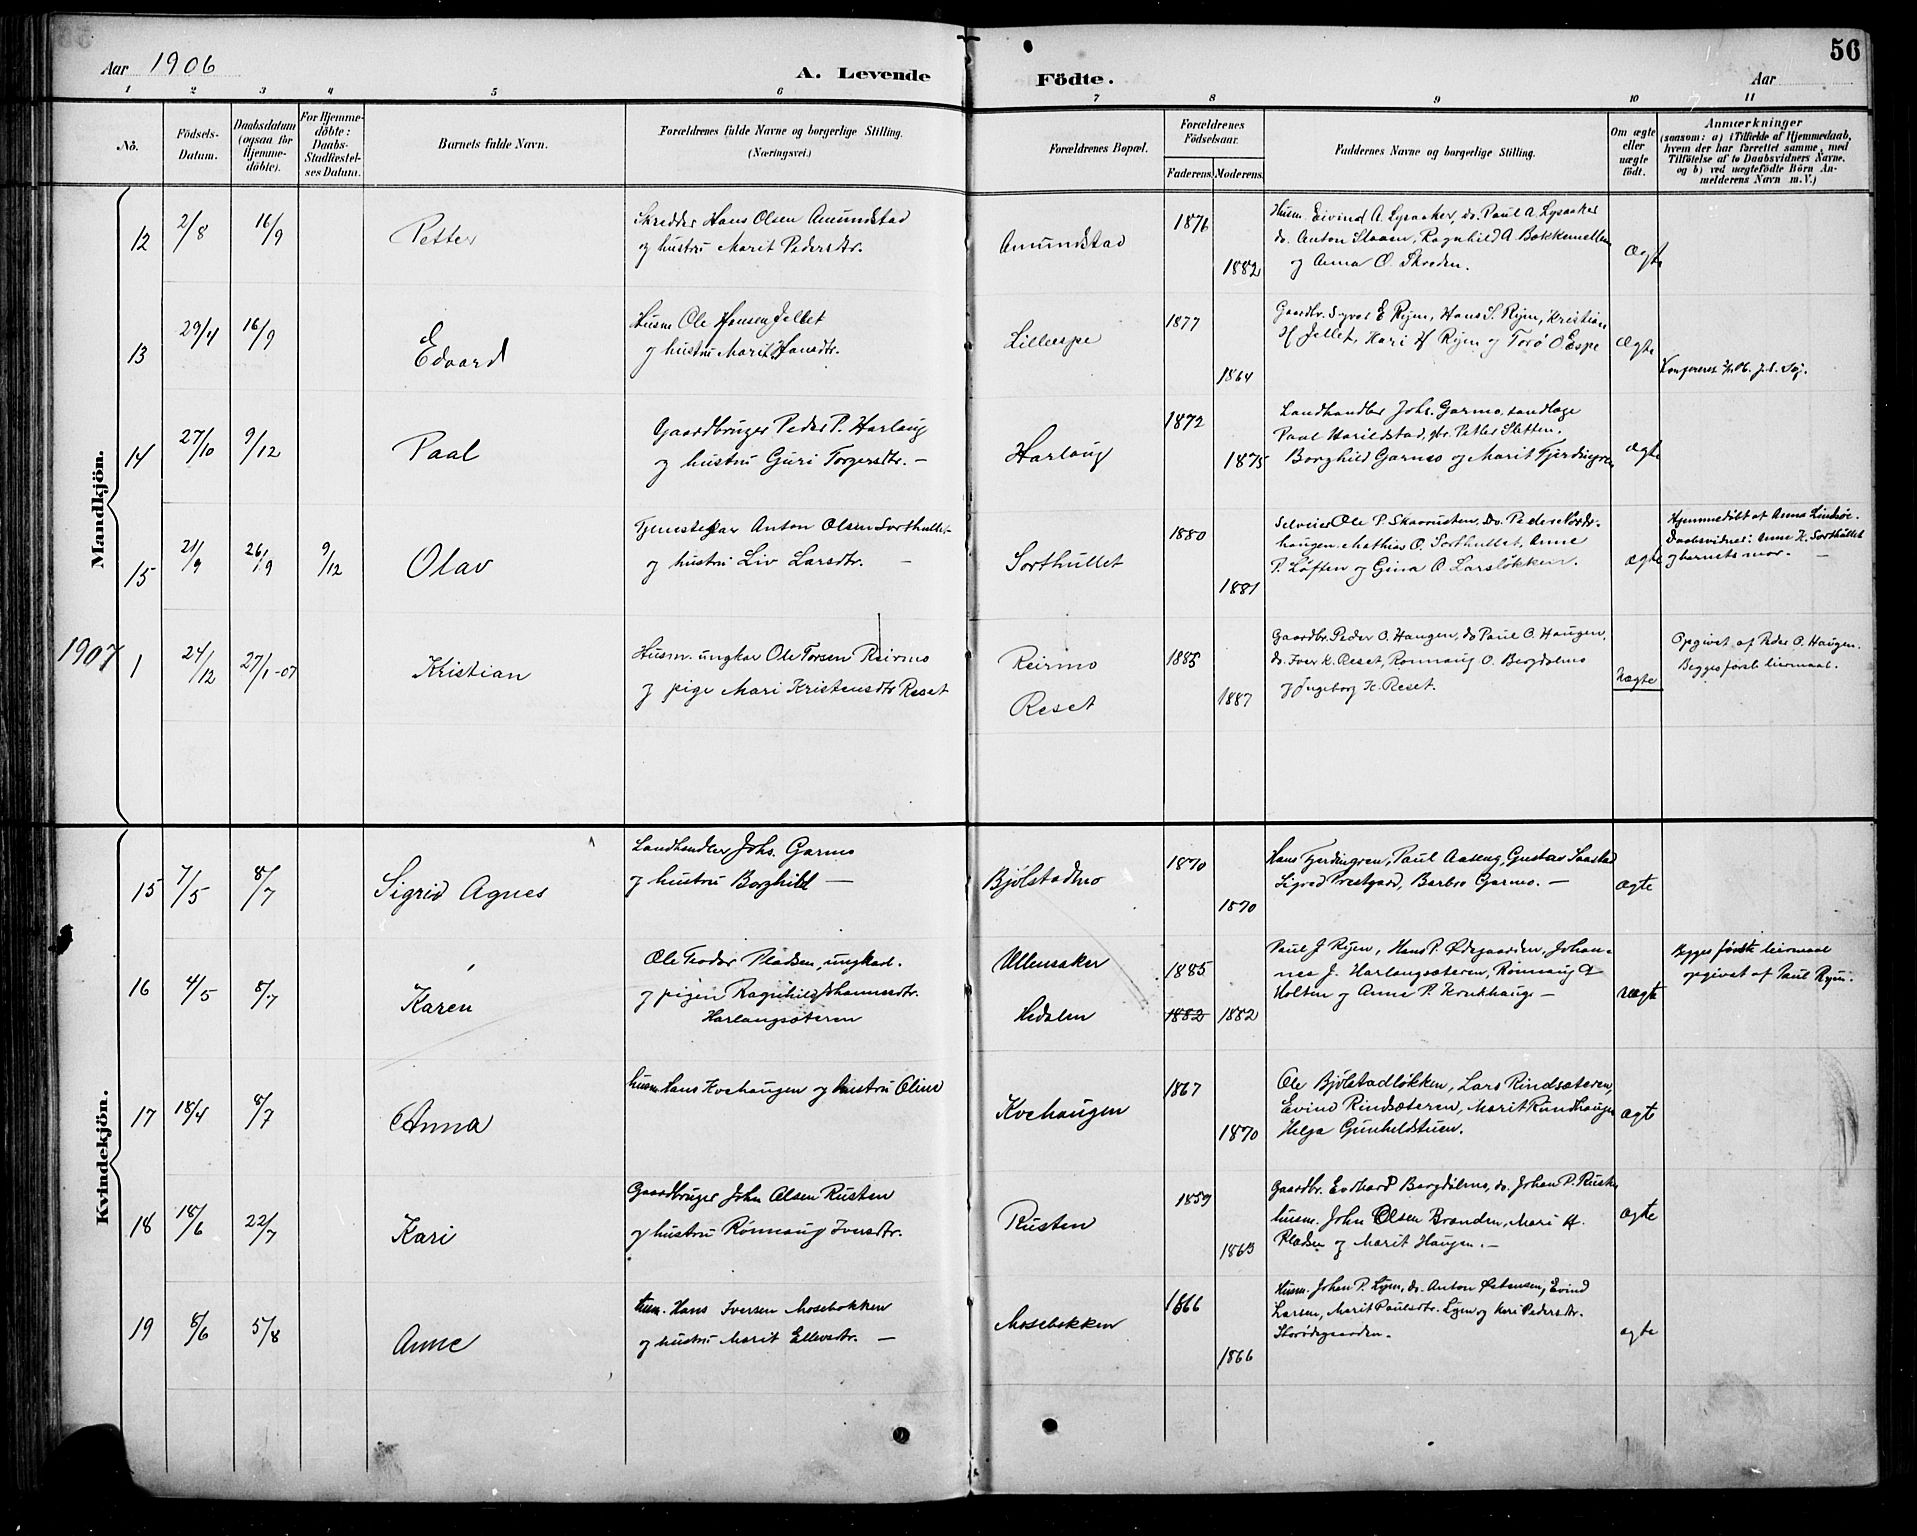 56
Aar 1906
A. Levende
Födte.
Aar
1 2 3 4 5 6 7 8 9 10 11
No.
Födsels-
Datum.
Daabsdatum
(ogsaa for
Hjemme-
döbte).
For Hjemme-
döbte:
Daabs-
Stadfæstel-
ses Datum.
Barnets fulde Navn.
Forældrenes fulde Navne og borgerlige Stilling.
(Næringsvei.)
Forældrenes Bopæl.
Forældrenes
Födselsaar.
Faderens. Moderens.
Faddernes Navne og borgerlige Stilling.
Om ægte
eller
uægte
födt.
Anmærkninger
(saasom: a) i Tilfælde af Hjemmedaab,
hvem der har forrettet samme, med
Tilföielse af to Daabsvidners Navne,
og b) ved uægtefödte Börn An-
melderens Navn m. V.)
Mandkjön.
12 2/8 16/9 Petter
Skrædder Hans Olsen Amundstad
og hustru Marit Pedersdtr.
Amundstad
1876
1882
Husm. Eivind A. Lysaaker, do. Paul A. Lysaaker
do. Anton Slaaen, Ragnhild A. Bakkemellem
og Anna O. Skreden.
Ægte
13 29/4 16/9 Edvard
Husm Ole Hansen Jellet
og hustru Marit Hansdtr.
Lilleespe
1877
1864
Gaardbr. Syver E Ryen, Hans S. Ryen, Kristian
H Jellet, Kari H Ryen og Torø O Espe
Ægte
14 27/10 9/12 Paal
Gaardbruger Peder P. Harlaug
og hustru Guri Torgersdtr. —
Harlaug
1872
1875
Landhandler Johs. Garmo, tandlæge
Paal Harildstad, Petter Sletten.
Borghild Garmo og Marit Fjerdingren
ægte
15 21/9 26/9 9/12 Olav
Tjenestekar Anton Olsen Sorthullet
og hustru Liv Larsdtr. —
Sorthullet
1880
1881
Selveier Ole P. Skaarusten, do. Peder Nordr-
haugen. Mathias O. Sorthullet, Anne
P. Løften og Gina O. Larsløkken.
ægte
Hjemmedøbt af Anna Lindsøe.
Daabsvidner: Anne H. Sorthullet
og barnets mor. —
1907 1 24/12 27/1-07 Kristian
Husm. ungkar Ole Torsen Reirmo
og pige Mari Kristensdtr Reset
Reirmo
Reset
1885
1887
Gaardbr. Peder O. Haugen, do Paul O. Haugen,
do. Iver K. Reset, Rønnaug O. Bergdølmo
og Ingeborg K. Reset.
Uægte
Opgivet af Peder O. Haugen.
Begges første leiermaal.
Kvindekjön.
15 7/5 8/7 Sigrid Agnes
Landhandler Johs. Garmo
og hustru Borghild —
Bjølstadmo
1870
1870
Hans Fjerdingren, Paul Aaseng, Gustav Saastad
Sigrid Prestgard, Barbro Garmo. —
ægte
16 4/5 8/7 Karen
Ole Teodor Pladsen, ungkarl.
og pigen Ragnhild Johannesdtr.
Harlaugsæteren
Ullensaker
Hedalen
1885
1882 1882
Paul J Ryen, Hans P. Ødegaarden, Johan-
nes J. Harlaugsæteren, Rønnaug
Holten og Anne P. Krukhaug —
uægte
Begges første leiermaal
opgivet af Paul Ryen.
17 18/4 8/7 Anna
husm. Hans Kvehaugen og hustru Oline
Kvehaugen
1867
1870
Ole Bjølstadløkken, Lars Rindsæteren,
Evind Rindsæteren, Marit Rundhaugen
Helga Gunhildstuen.
ægte
18 18/6 22/7 Kari
Gaardbruger John Olsen Rusten
og hustru Rønnaug Iversdtr.
Rusten
1859
1863
Gaardbr. Bergdølmo, do. Johan P. Rusten
husm. John Olsen Brænden, Mari H.
Pladsen og Marit Haugen. —
ægte
19 8/6 5/8 Anne
Husm. Hans Iversen Mosebakken
og hustru Marit Ellevsdtr. —
Mosebakken
1866
1866
Husm. Johan P. Lyen, do. Anton Østensen, Evind
Larsen, Marit Paulsdtr. Lyen og Kari Pedersdtr.
ægte